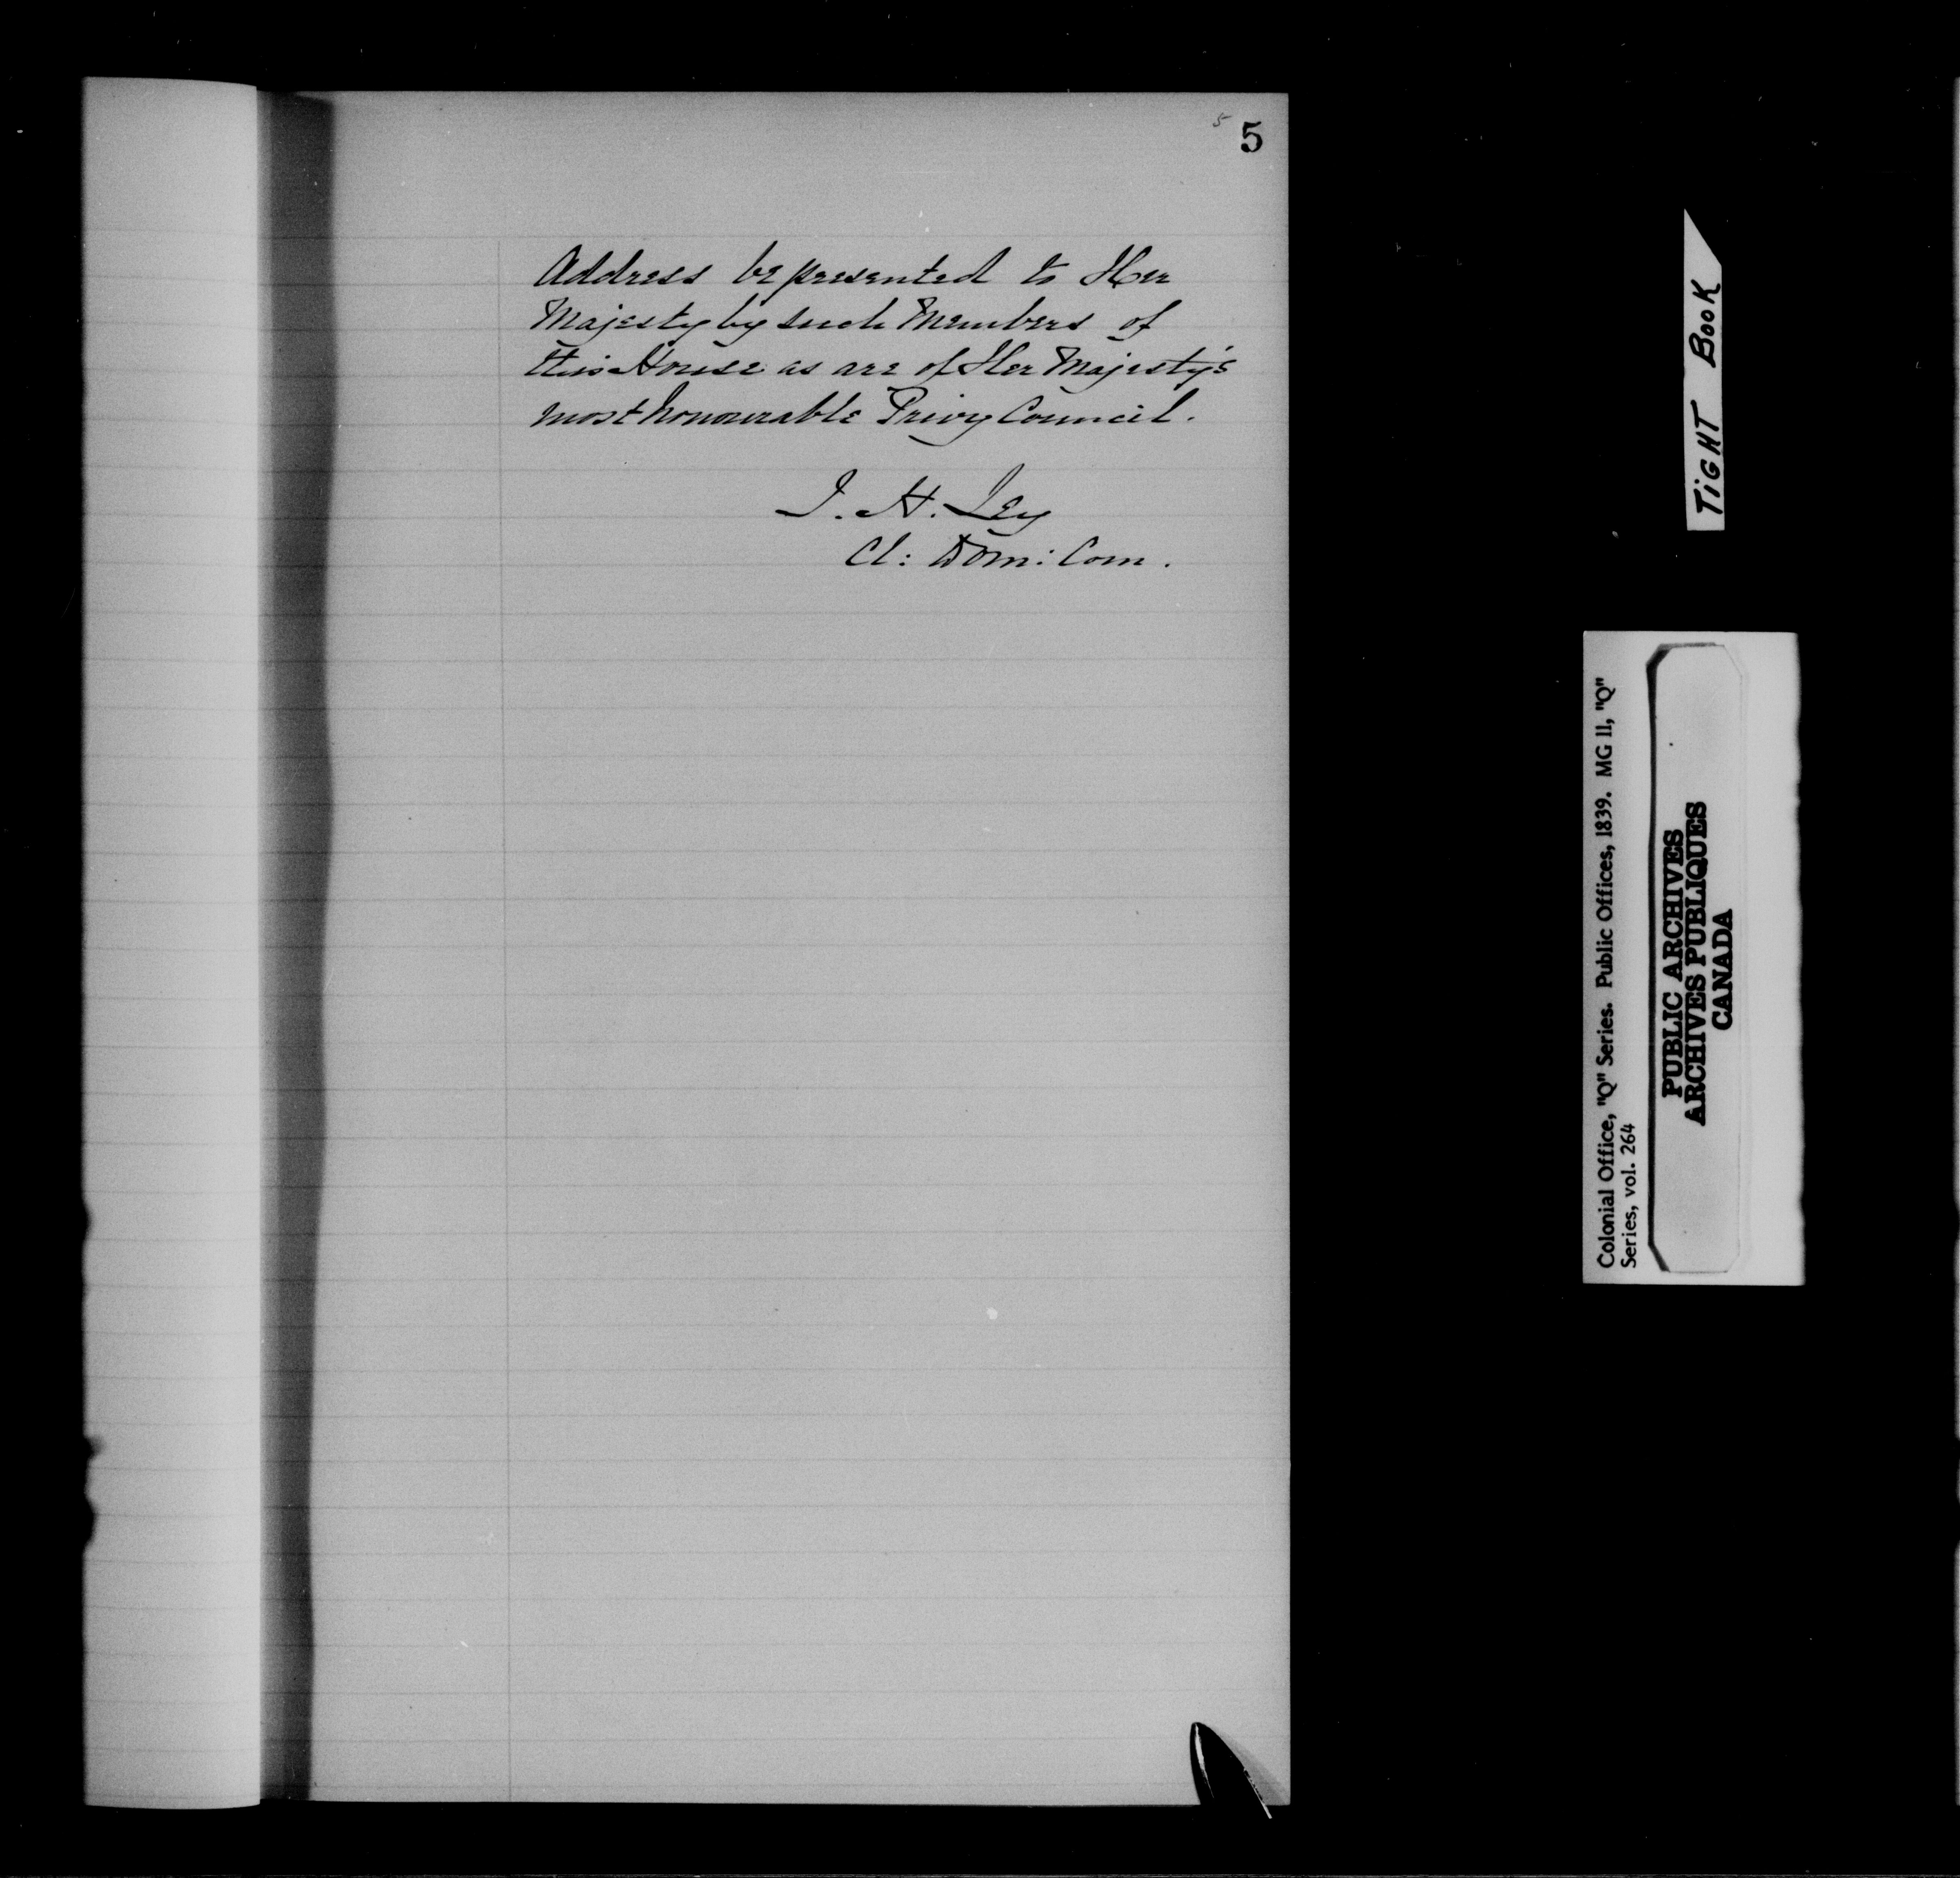 5
5
Address be presented to Her
Majesty by such Members of
this House as are of Her Majesty's
most honourable Privy Council.
J. H. Ley
Cl: Dom: Com.
TIGHT BOOK
Colonial Office, "Q" Series. Public Offices, 1839. MG 11, "Q"
Series, vol. 264
PUBLIC ARCHIVES
ARCHIVES PUBLIQUES
CANADA